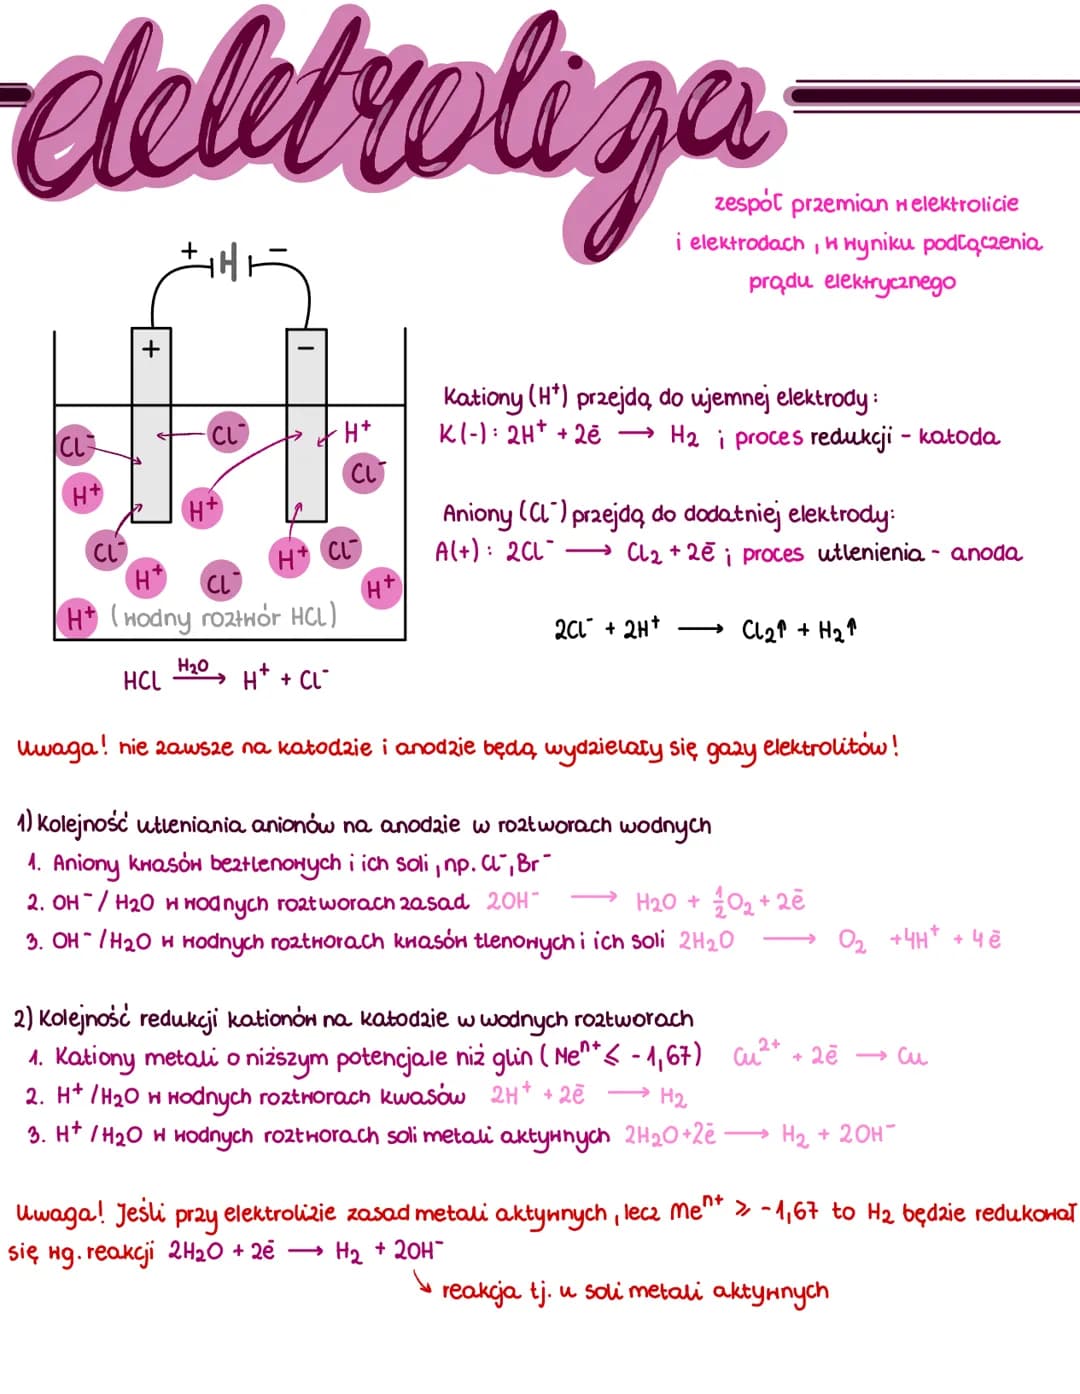 elektroliza
zespół przemian w elektrolicie
i elektrodach, w wyniku podłączenia
prądu elektrycznego
+ −
+ −
Cl⁻ Cl⁻ H⁺
Cl⁻
H⁺ H⁺
Cl⁻ H⁺ Cl⁻
H⁺ Cl⁻ H⁺
H⁺ (wodny roztwór HCl)
HCl H₂O→ H⁺ + Cl⁻
Kationy (H⁺) przejdą do ujemnej elektrody:
K(-): 2H⁺ + 2ē → H₂ ; proces redukcji - katoda
Aniony (Cl⁻) przejdą do dodatniej elektrody:
A(+): 2Cl⁻ → Cl₂ + 2ē ; proces utlenienia - anoda
2Cl⁻ + 2H⁺ → Cl₂↑ + H₂↑
Uwaga! nie zawsze na katodzie i anodzie będą wydzielały się gazy elektrolitów!
1) Kolejność utleniania anionów na anodzie w roztworach wodnych
1. Aniony kwasów beztlenowych i ich soli, np. Cl⁻, Br⁻
2. OH⁻/ H₂O w wodnych roztworach zasad 2OH⁻ → H₂O + ½O₂ + 2ē
3. OH⁻ /H₂O w wodnych roztworach kwasów tlenowych i ich soli 2H₂O → O₂ +4H⁺ + 4ē
2) Kolejność redukcji kationów na katodzie w wodnych roztworach
1. Kationy metali o niższym potencjale niż glin (Meⁿ⁺ ⩽ -1,67) Cu²⁺ + 2ē → Cu
2. H⁺ /H₂O w wodnych roztworach kwasów 2H⁺ + 2ē → H₂
3. H⁺ /H₂O w wodnych roztworach soli metali aktywnych 2H₂O+2ē → H₂ + 2OH⁻
Uwaga! Jeśli przy elektrolizie zasad metali aktywnych, lecz Meⁿ⁺ ⩾ -1,67 to H₂ będzie redukował
się wg. reakcji 2H₂O + 2ē → H₂ + 2OH⁻
reakcja tj. u soli metali aktywnych